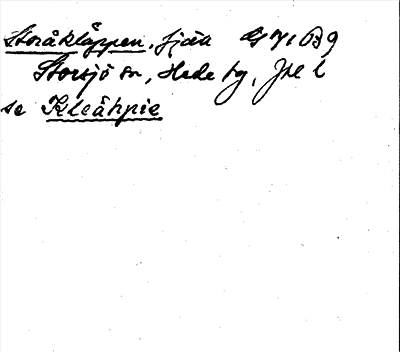 Storåkläppen, fjäll
Storsjö sn, Hede tg, Jtl l
se Kleähpie